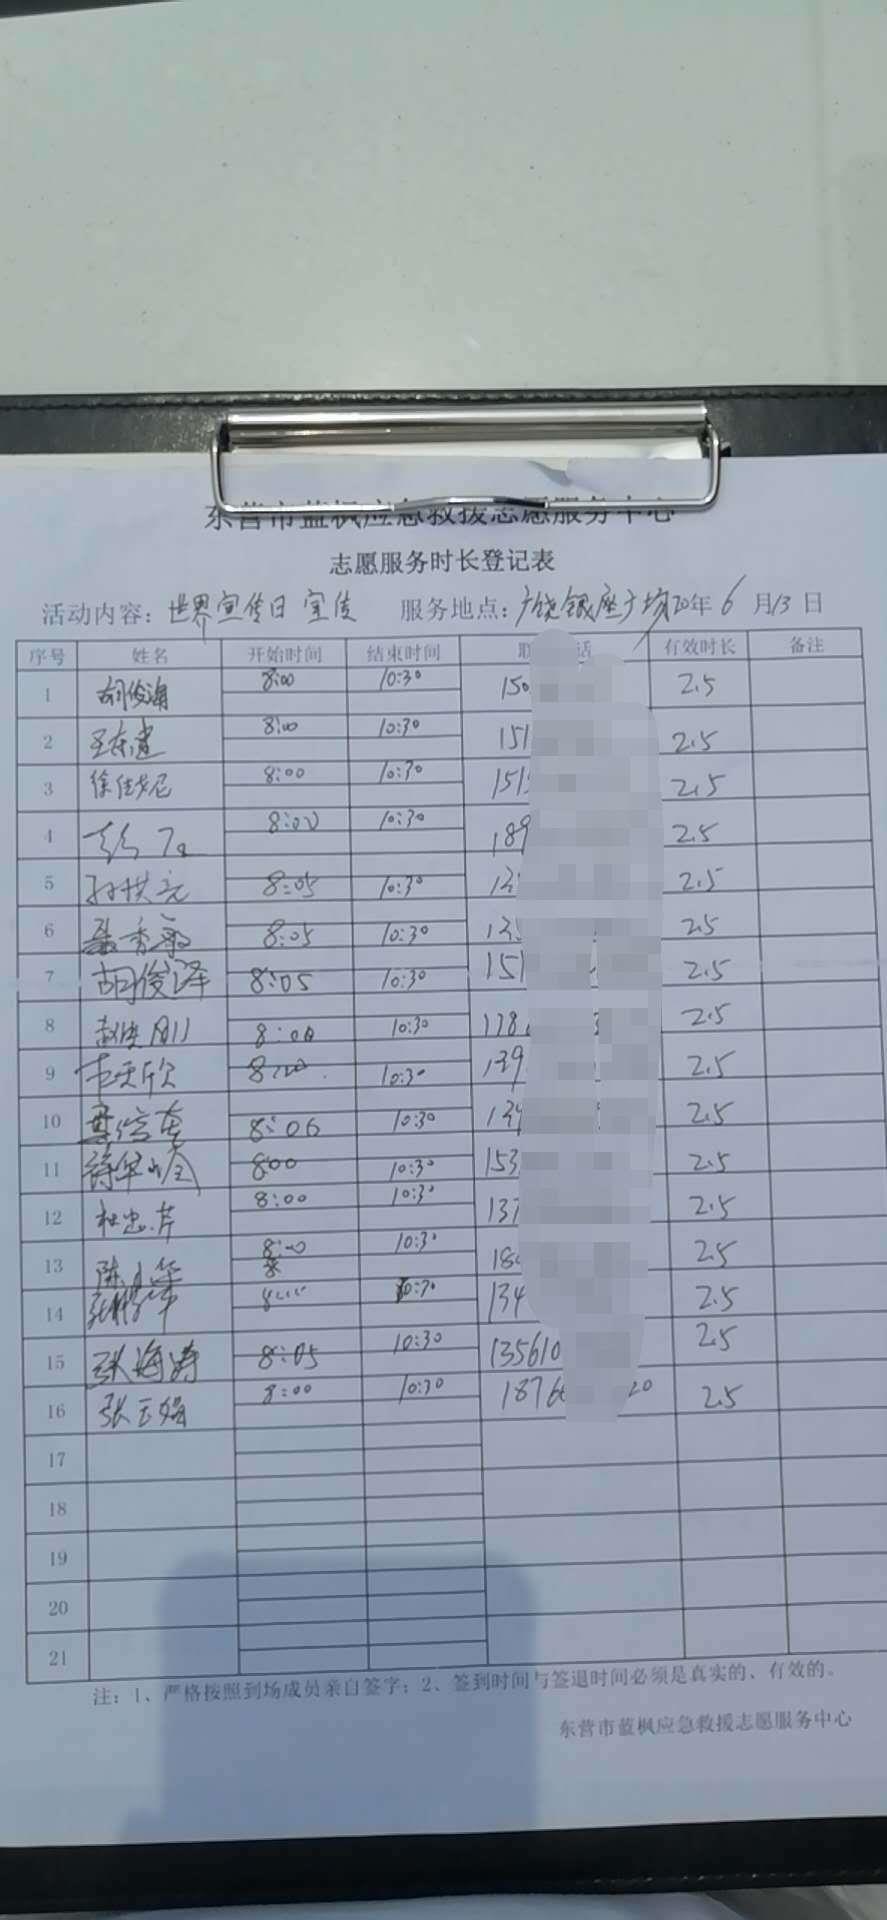 东营市蓝枫应急救援志愿服务中心
志愿服务时长登记表
活动内容：世界宣传日 宣传 服务地点：广饶银座广场 20年 6 月 13 日
序号 姓名 开始时间 结束时间 联 话 有效时长 备注
1 胡俊海 8:00 10:30 150 2.5
2 王东建 8:00 10:30 151 2.5
3 徐佳 8:00 10:30 151 2.5
4 8:00 10:30 189 2.5
5 孙洪亮 8:05 10:30 13 2.5
6 聂秀敏 8:05 10:30 13 2.5
7 胡俊泽 8:05 10:30 151 2.5
8 刚 8:00 10:30 178 2.5
9 欣 10:30 139 2.5
10 8:06 10:30 139 2.5
11 800 10:30 153 2.5
12 杜忠芹 8:00 10:30 137 2.5
13 陈 8:00 10:30 18 2.5
14 10:30 134 2.5
15 张海涛 8:05 10:30 135610 2.5
16 张玉强 8:00 10:30 1876 20 2.5
17
18
19
20
21
注：1、严格按照到场成员亲自签字；2、签到时间与签退时间必须是真实的、有效的。
东营市蓝枫应急救援志愿服务中心